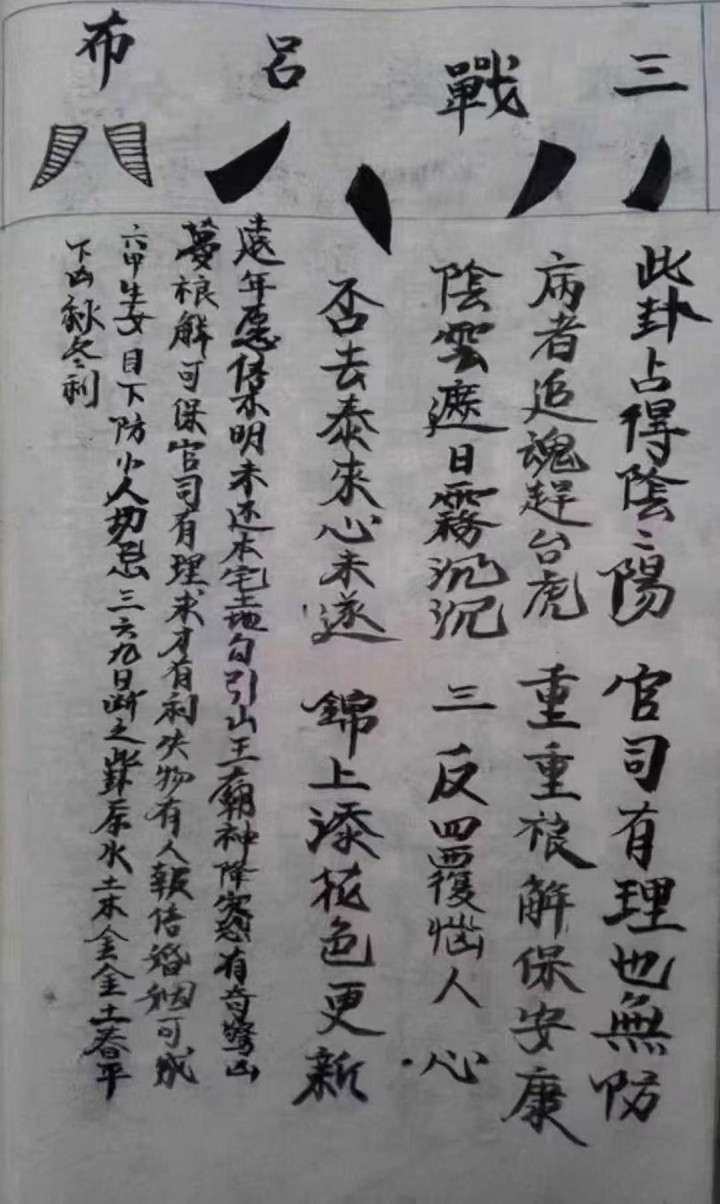 三戰呂布
此卦占得陰〻陽 官司有理也無防
病者追魂趕台虎 重重禳解保安康
陰雲遮日霧沉沉 三反四覆惱人心
否去泰來心未遂 錦上添花色更新
遠年愿信不明未还本宅土地勾引山王廟神降災惡有奇驚凶
夢禳解可保官司有理求才有利失物有人報信婚姻可成
六甲生女目下防小人切忌三六九日断之此卦系水土木金金土春平
下凶秋冬利